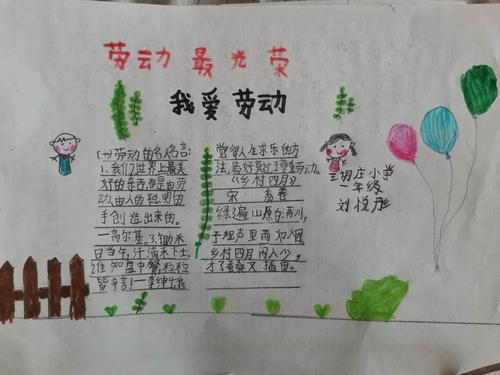 劳动最光荣
我爱劳动
(一)劳动的名人名言:
1、我们世界上最美
好的东西,都是由劳
动、由人的聪明的
手创造出来的。
—高尔基、3、锄禾
日当午,汗滴禾下土,
谁知盘中餐,粒粒
皆辛苦!—李绅
觉得人生求乐的方
法,最好莫过于尊重劳动。
《乡村四月》
宋 翁卷
绿遍山原白满川,
子规声里雨如烟。
乡村四月闲人少,
才了蚕桑又插田。
王胡庄小学
一年级